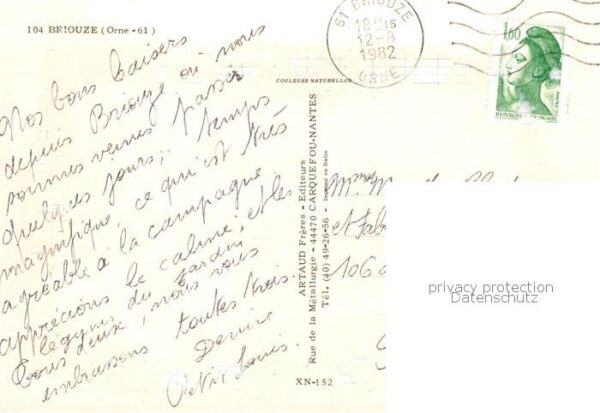 104 BRIOUZE (Orne - 61)
Nos bons baisers
depuis Briouze où nous
sommes venus passer
quelques jours, temps
magnifique, ce qui est très
agréable à la campagne
apprécions le calme, et les
légumes du jardin
Tous deux, nous vous
embrassons toutes trois.
Denise
Louis.
COULEURS NATURELLES
ARTAUD Frères - Editeurs
Rue de la Métallurgie - 44470 CARQUEFOU-NANTES
Tél. (40) 49-26-56 -
XN-152
61 BRIOUZE
18 H 15
12-8
1982
ORNE
1,60
REPUBLIQUE FRANÇAISE
et
106
privacy protection
Datenschutz